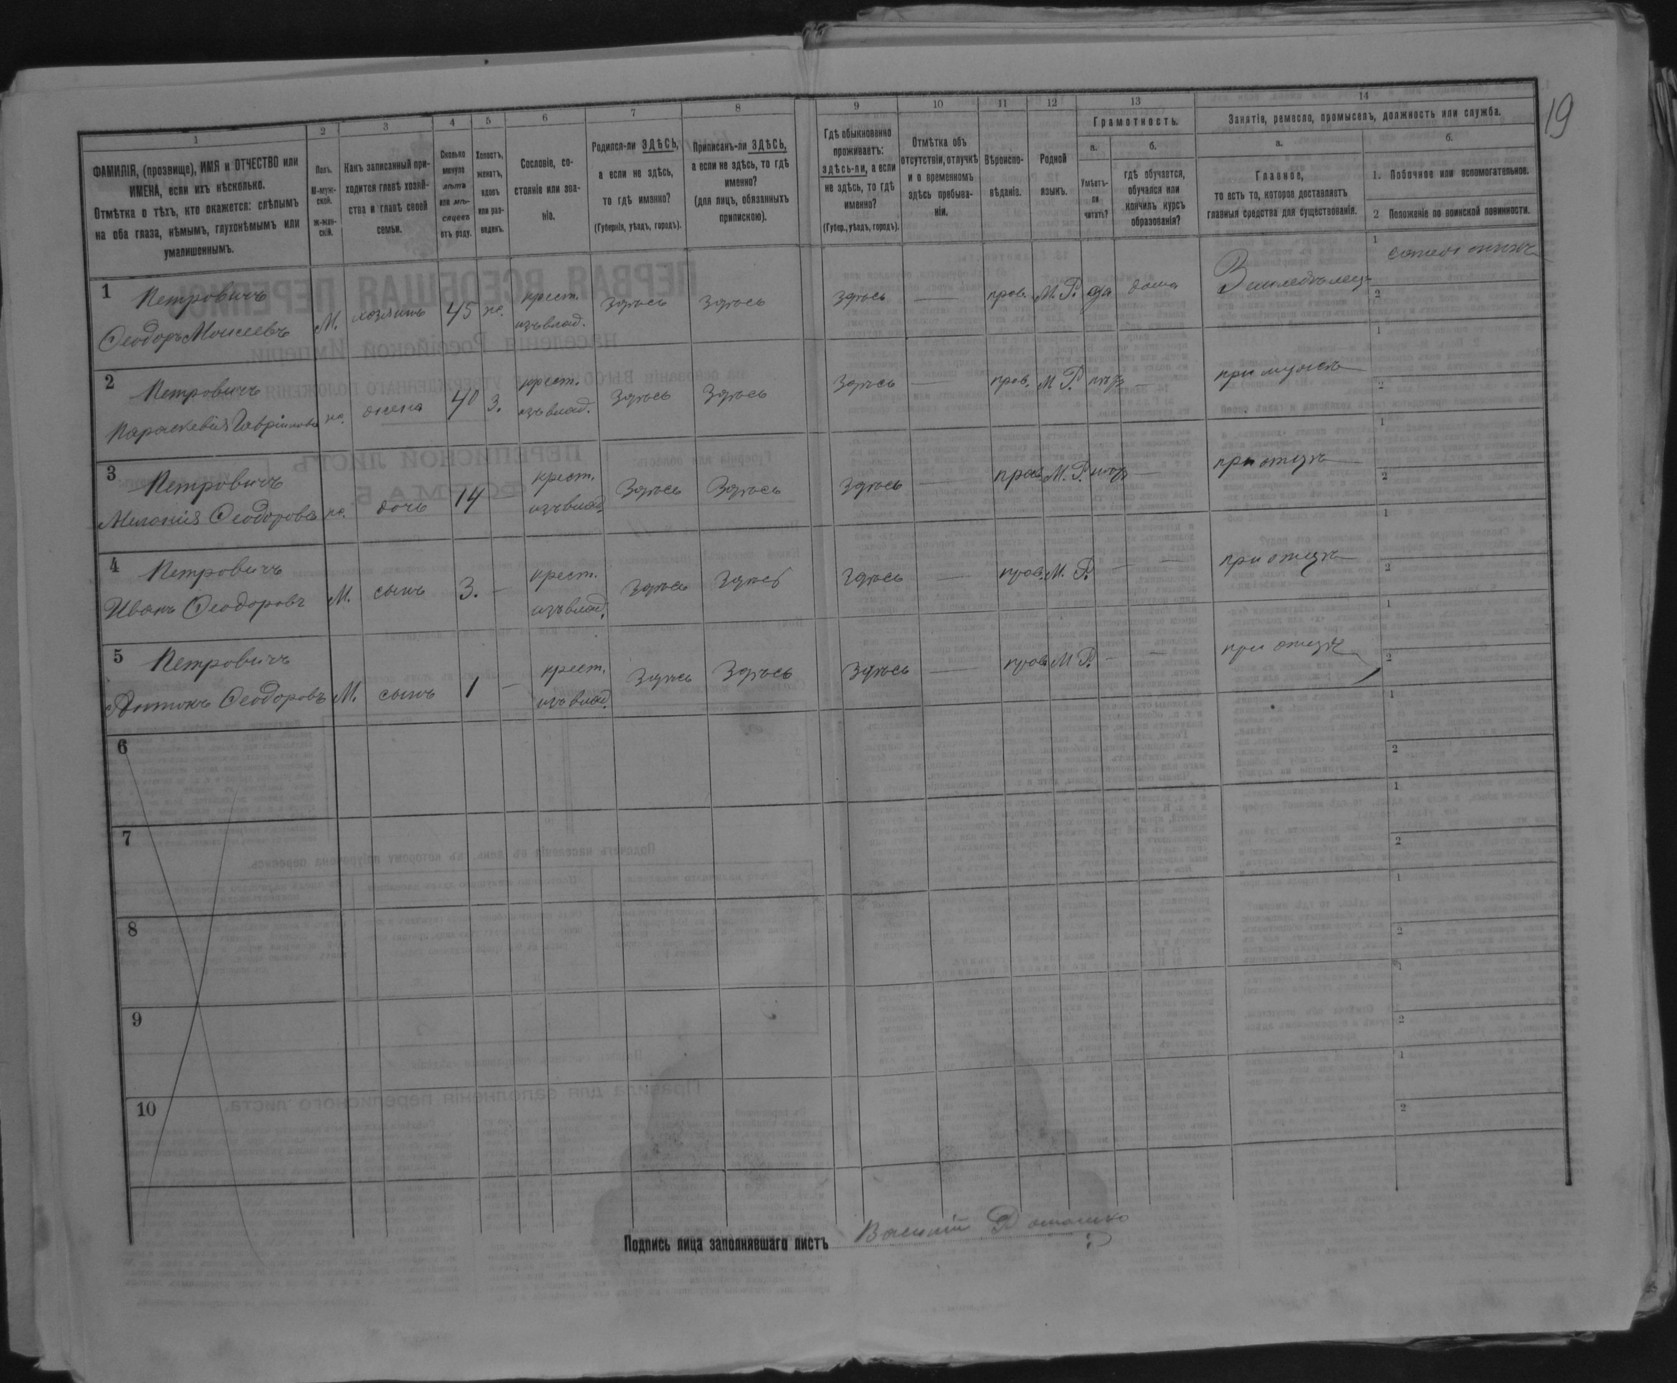 19
1
2
3
4
5
6
7
8
9
10
11
12
13
14
ФАМИЛІЯ, (прозвище), ИМЯ и ОТЧЕСТВО или
ИМЕНА, если ихъ нѣсколько.
Отмѣтка о тѣхъ, кто окажется: слѣпымъ
на оба глаза, нѣмымъ, глухонѣмымъ или
умалишеннымъ.
Полъ.
М-муж-
ской.
Ж-жен-
скій.
Какъ записанный при-
ходится главѣ хозяй-
ства и главѣ своей
семьи.
Сколько
минуло
лѣтъ
или мѣ-
сяцевъ
отъ роду.
Холостъ,
женатъ,
вдовъ
или раз-
веденъ.
Сословіе, со-
стояніе или зва-
ніе.
Родился-ли ЗДѢСЬ,
а если не здѣсь,
то гдѣ именно?
(Губернія, уѣздъ, городъ).
Приписанъ-ли ЗДѢСЬ,
а если не здѣсь, то гдѣ
именно?
(для лицъ, обязанныхъ
припискою).
Гдѣ обыкновенно
проживаетъ:
здѣсь-ли, а если
не здѣсь, то гдѣ
именно?
(Губер., уѣздъ, городъ).
Отмѣтка объ
отсутствіи, отлучкѣ
и о временномъ
здѣсь пребыва-
ніи.
Вѣроиспо-
вѣданіе.
Родной
языкъ.
Грамотность.
а.
Умѣетъ-
ли
читать?
б.
гдѣ обучается,
обучался или
кончилъ курсъ
образованія?
Занятіе, ремесло, промыселъ, должность или служба.
а.
Главное,
то есть то, которое доставляетъ
главныя средства для существованія.
б.
1. Побочное или вспомогательное.
2 Положеніе по воинской повинности.
1 Петровичъ
Ѳеодоръ Моисеевъ М. хозяинъ 45 ж. крест. изъ влад. Здѣсь Здѣсь Здѣсь — прав. М.Р. да дома Земледѣлецъ
1
2
2 Петровичъ
Параскевія ж. жена 40 З. крест. изъ влад. Здѣсь Здѣсь Здѣсь — прав. М.Р. нѣтъ при мужѣ
1
2
3 Петровичъ
Меланія Ѳеодорова ж. дочь 14 — крест. изъ влад. Здѣсь Здѣсь Здѣсь — прав. М.Р. нѣтъ — при отцѣ
1
2
4 Петровичъ
Иванъ Ѳеодоровъ М. сынъ 3. — крест. изъ влад. Здѣсь Здѣсь Здѣсь — прав. М.Р. — — при отцѣ
1
2
5 Петровичъ
Антонъ Ѳеодоровъ М. сынъ 1 — крест. изъ влад. Здѣсь Здѣсь Здѣсь — прав. М.Р. — — при отцѣ
1
2
6
1
2
7
1
2
8
1
2
9
2
10
1
2
Подпись лица заполнявшаго листъ Василій